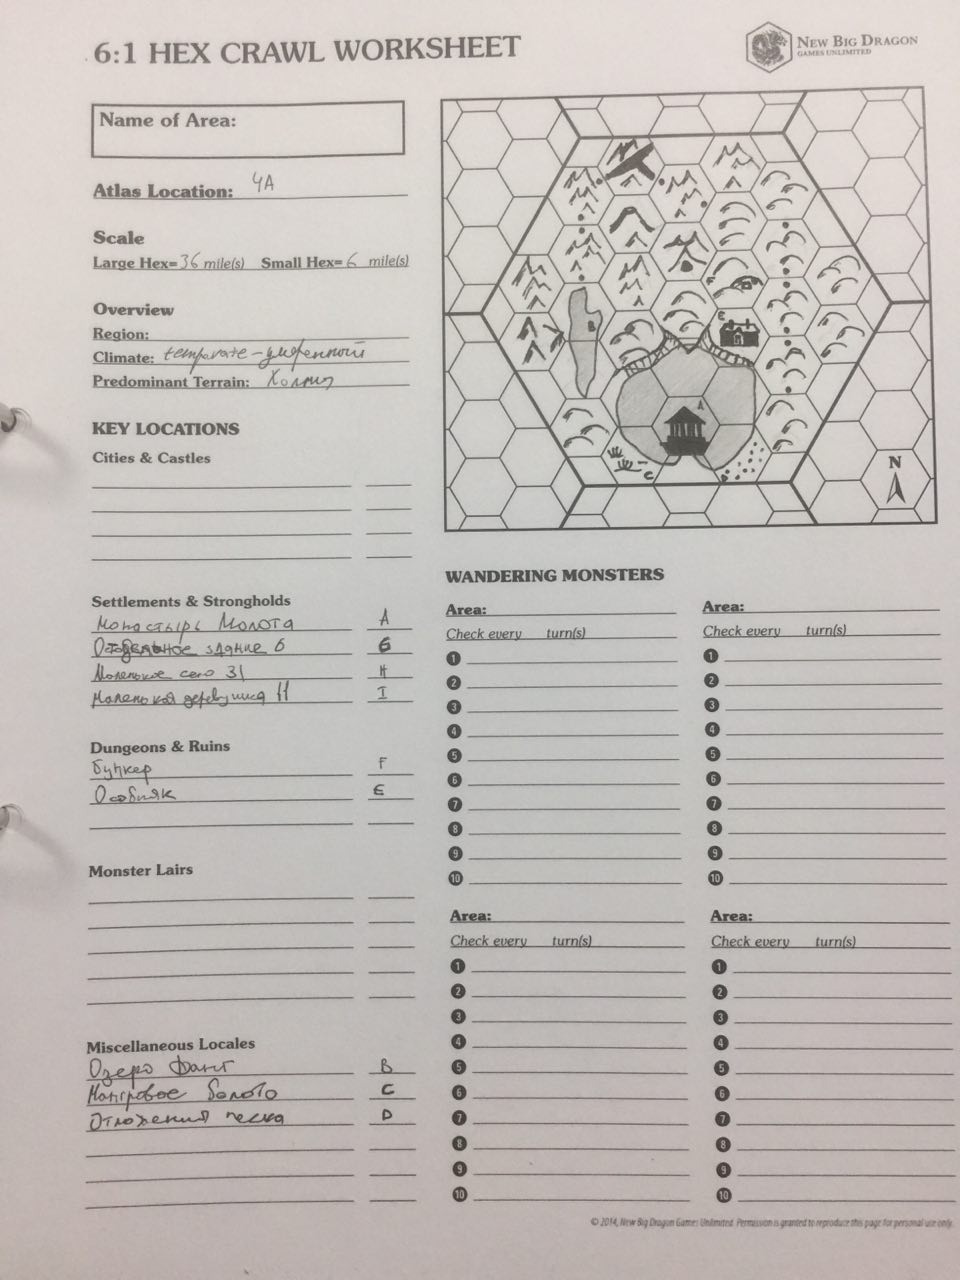 6:1 HEX CRAWL WORKSHEET
NEW BIG DRAGON
GAMES UNLIMITED
Name of Area:
Atlas Location: 4A
Scale
Large Hex= 36 mile(s) Small Hex= 6 mile(s)
Overview
Region:
Climate: temperate - умеренный
Predominant Terrain: Холмы
KEY LOCATIONS
Cities & Castles
Settlements & Strongholds
Монастырь Молота A
здание 6 G
Маленькое село 31 H
Маленькая деревушка 11 I
Dungeons & Ruins
Бункер F
Особняк E
Monster Lairs
Miscellaneous Locales
Озеро B
Мангровое болото C
Отложения песка D
B
E
A
C
D
N
WANDERING MONSTERS
Area:
Check every turn(s)
1
2
3
4
5
6
7
8
9
10
Area:
Check every turn(s)
1
2
3
4
5
6
7
8
9
10
Area:
Check every turn(s)
1
2
3
4
5
6
7
8
9
10
Area:
Check every turn(s)
1
2
3
4
5
6
7
8
9
10
© 2014, New Big Dragon Games Unlimited. Permission is granted to reproduce this page for personal use only.